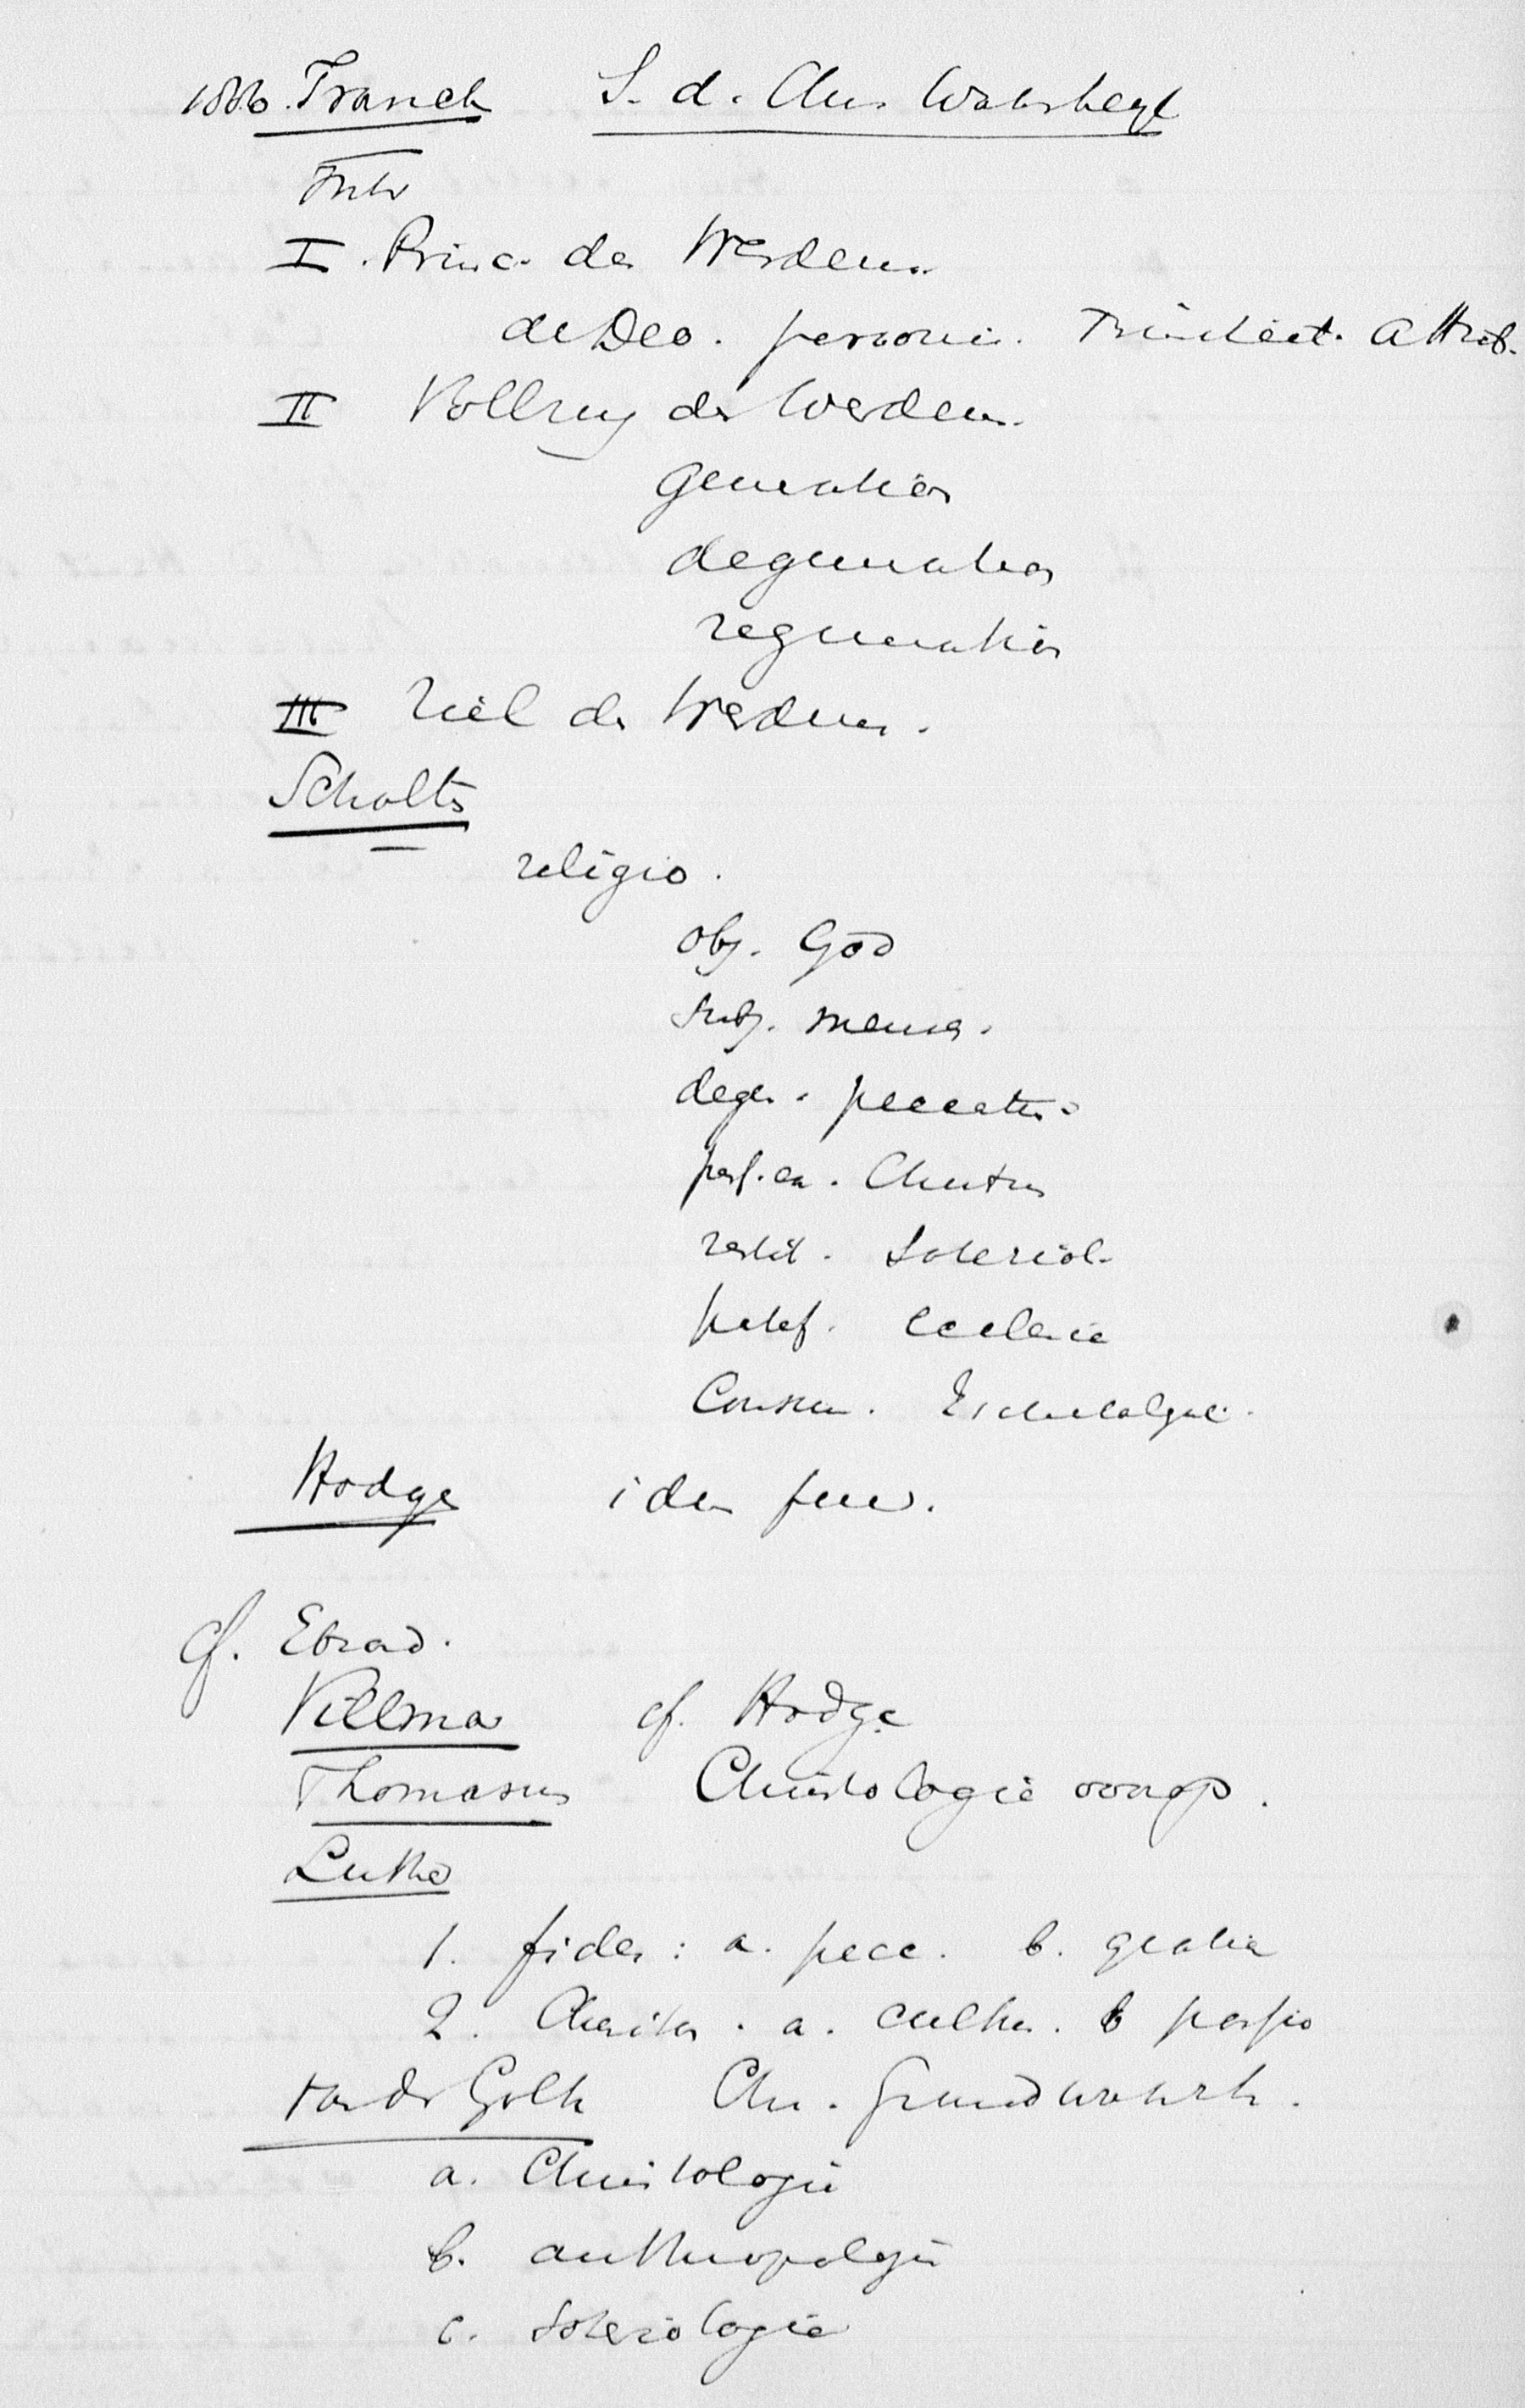 1886. Franck S. d. Chr. Wahrheyt
Intr
I. Princ. des Werdens.
de Deo. personis. Triniteit. Attrib.
II Vollzug des Werdens.
generation
degeneration
regeneration
III Ziel des Werdens.
Scholts
religio.
obj. God
subj. mensch.
degen. peccatum.
Christus
restit. Soteriol.
ecclesia
Consum. Eschatologie.
Hodge idem fere.
cf. Ebrard.
Villmar cf. Hodge
Thomasius Christologie voorop.
Luther
1. fides: a. pecc. b. gratia
2. Charitas. a. cultus. b
von der Goltz Chr. Grundwahrh.
a. Christologie
b. anthropologie
c. Soteriologie